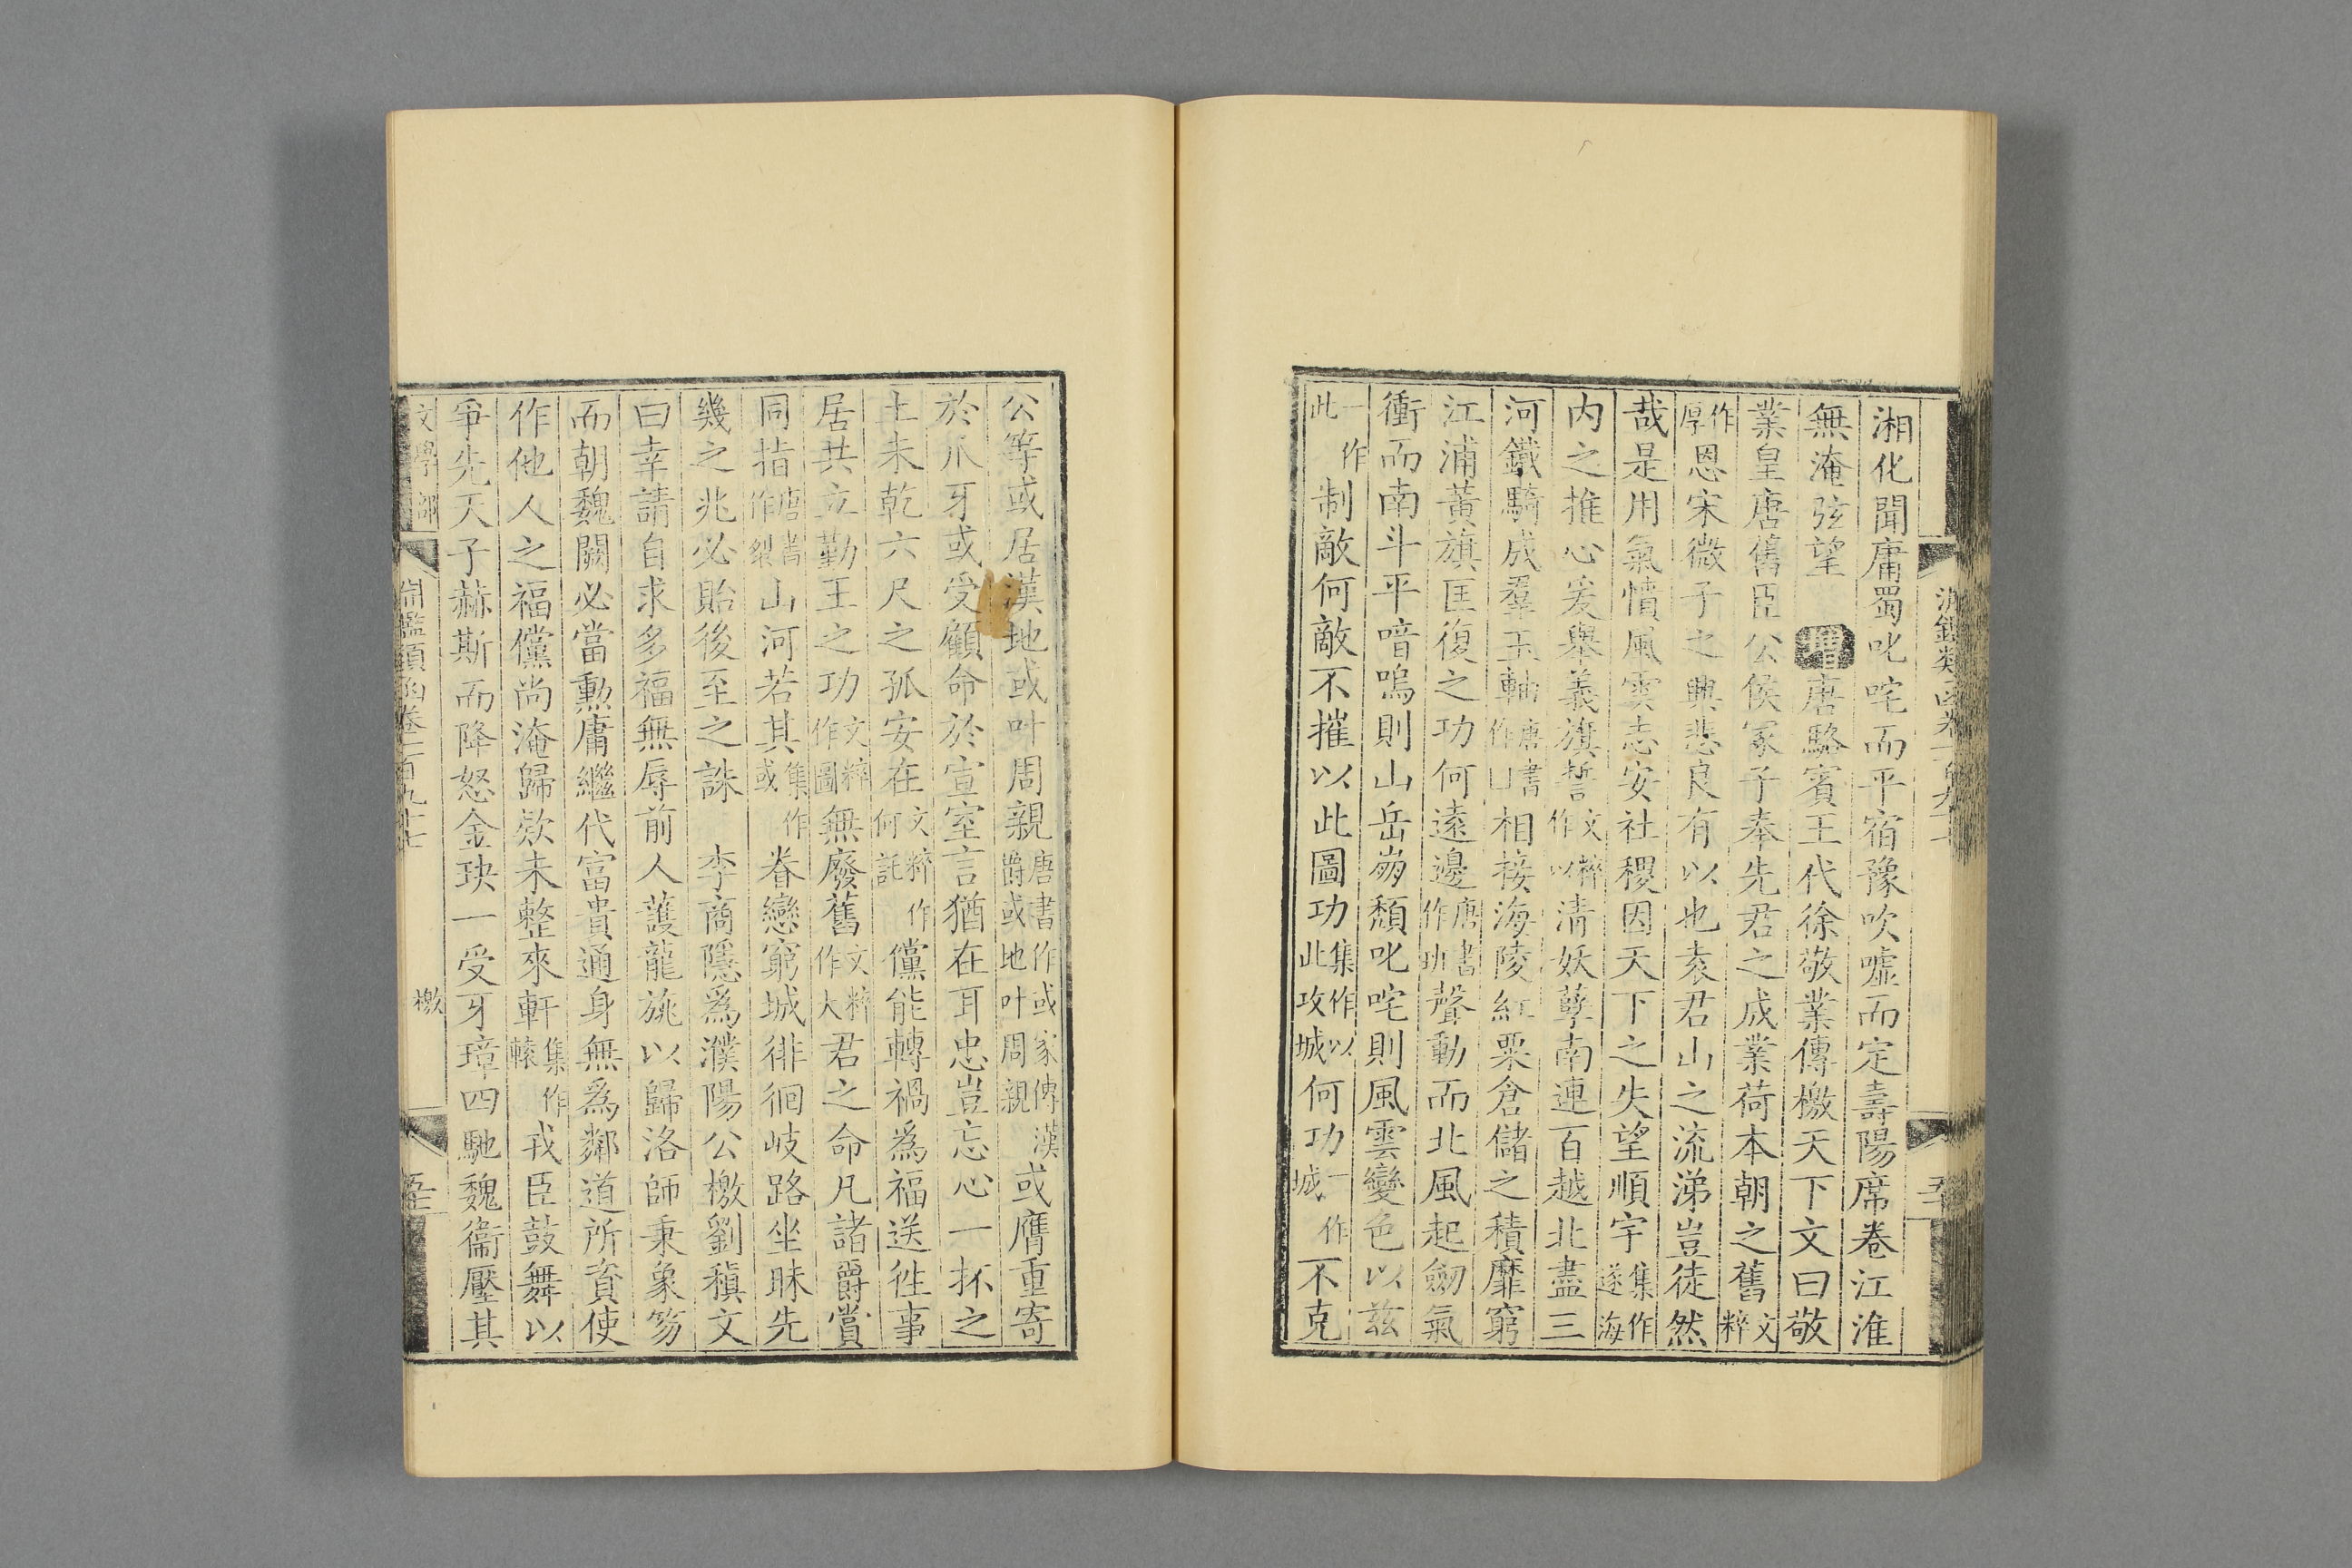 湘化聞庸蜀叱咤而平宿豫吹噓而定壽陽席卷江淮
無淹弦望 增唐駱賓王代徐敬業傳檄天下文曰敬
業皇唐舊臣公侯冢子奉先君之成業荷本朝之舊文粹
作厚恩宋微子之興悲良有以也袁君山之流涕豈徒然
哉是用氣憤風雲志安社稷因天下之失望順宇集作遂海
内之推心爰舉義旗誓文粹作以清妖孽南連百越北盡三
河鐵騎成羣玉軸唐書作相接海陵紅粟倉儲之積靡窮
江浦黃旗匡復之功何遠邊唐書作班聲動而北風起劒氣
衝而南斗平喑嗚則山岳崩頹叱咤則風雲變色以兹
一作此制敵何敵不摧以此圖功集作以此攻城何功一作城不克
公等或居漢地或叶周親唐書作或家傳漢爵或地叶周親或膺重寄
於爪牙或受顧命於宣室言猶在耳忠豈忘心一抔之
土未乾六尺之孤安在文粹作何託儻能轉禍爲福送徃事
居共立勤王之功文粹作圖無廢舊文粹作大君之命凡諸爵賞
同指唐書作裂山河若其集作或眷戀窮城徘徊岐路坐昧先
幾之兆必貽後至之誅 李商隱爲濮陽公檄劉稹文
曰幸請自求多福無辱前人護龍旐以歸洛師秉象笏
而朝魏闕必當勳庸繼代富貴通身無爲鄰道所資使
作他人之福儻尚淹歸欵未整來軒集作轅戎臣鼓舞以
爭先天子赫斯而降怒金玦一受牙璋四馳魏衞壓其
文學部
淵鑑類函卷一百九十七 檄